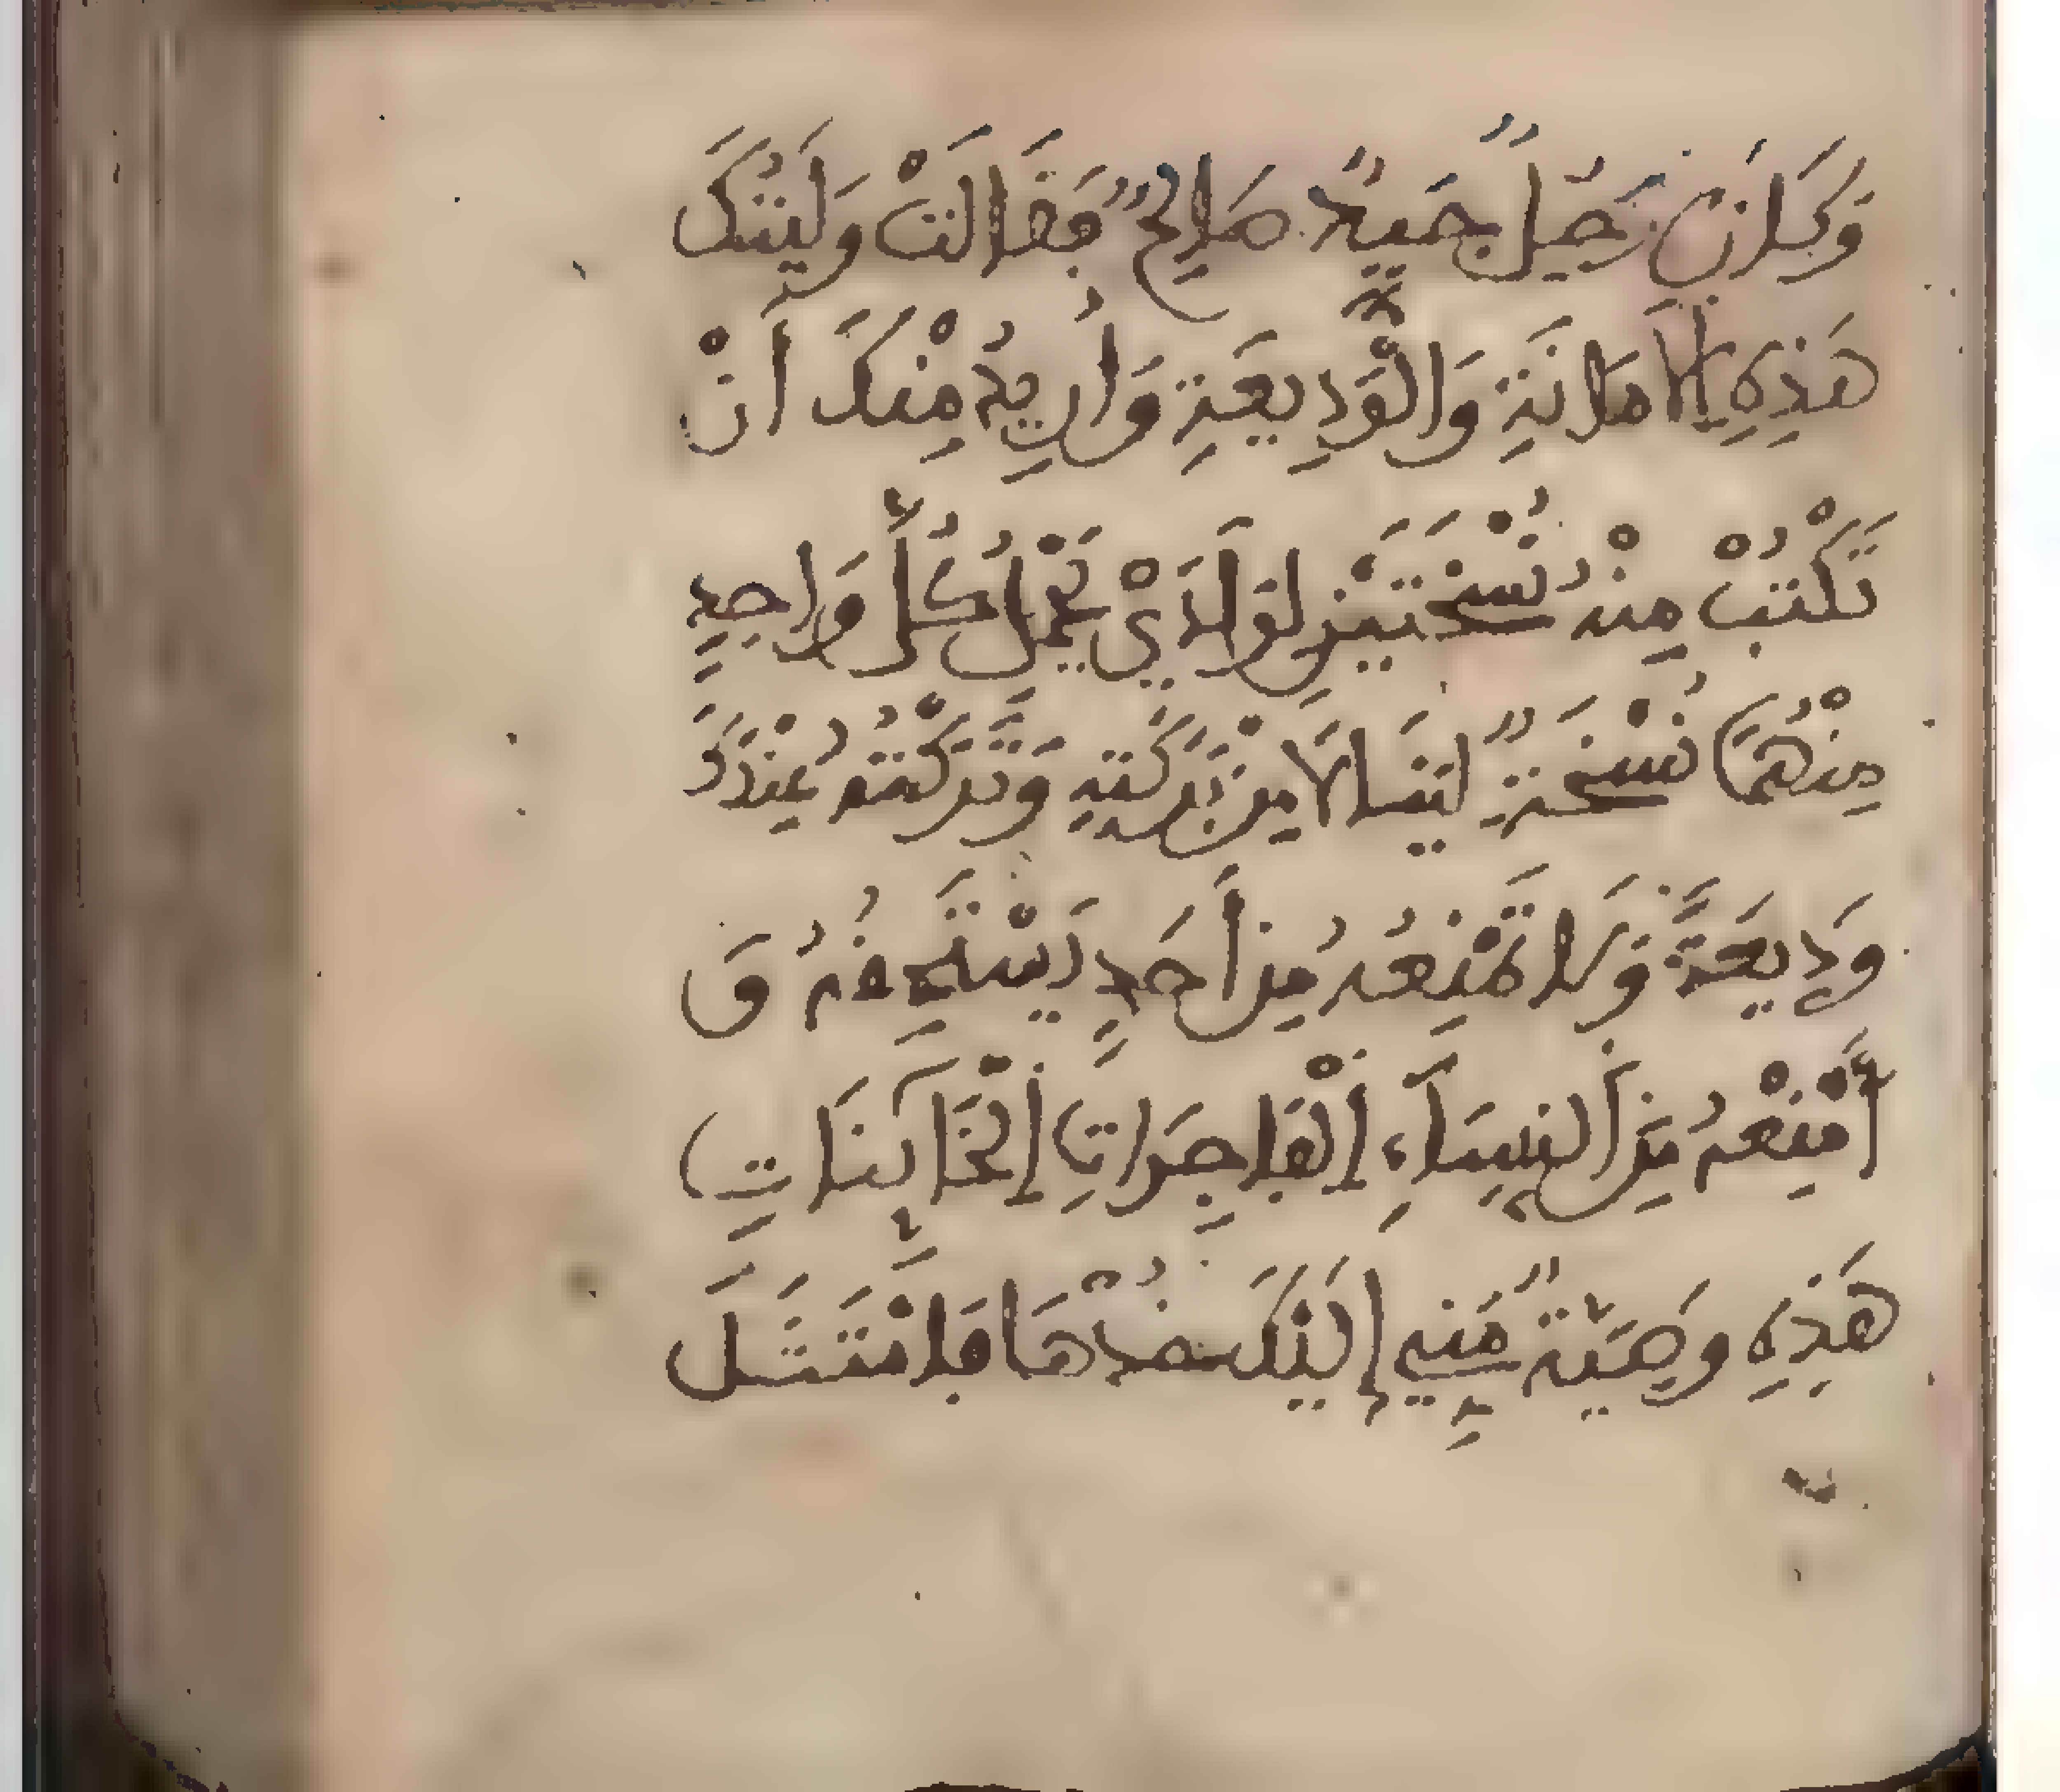 وَكَانَ رَجُلٌ جَيِّدٌ صَالِحٌ فَقَالَتْ وَلَيْتُكَ
هَذِهِ الْأَمَانَةِ وَالْوَدِيعَةِ وَأُرِيدُ مِنْكَ أَنْ
تَكْتُبْ مِنْهُ نُسْخَتَيْنِ لِوَلَدَيْ يَحْمِلُ كُلُّ وَاحِدٍ
مِنْهُمَا نُسْخَةٌ لِيَنَالَهَا مِنْ بَرَكَتِهِ وَتَرَكْتُهُ عِنْدَكَ
وَدِيعَةً وَلَا تَمْنِعُهُ مِنْ أَحَدٍ يَسْتَحِقُهُ وَ
أَمْنِعْهُ مِنَ النِّسَاءِ الْفَاجِرَاتِ الْخَائِنَاتِ
هَذِهِ وَصِيَّةٌ مِنِّي إِلَيْكَ خُذْهَا فَامْتَثَلَ